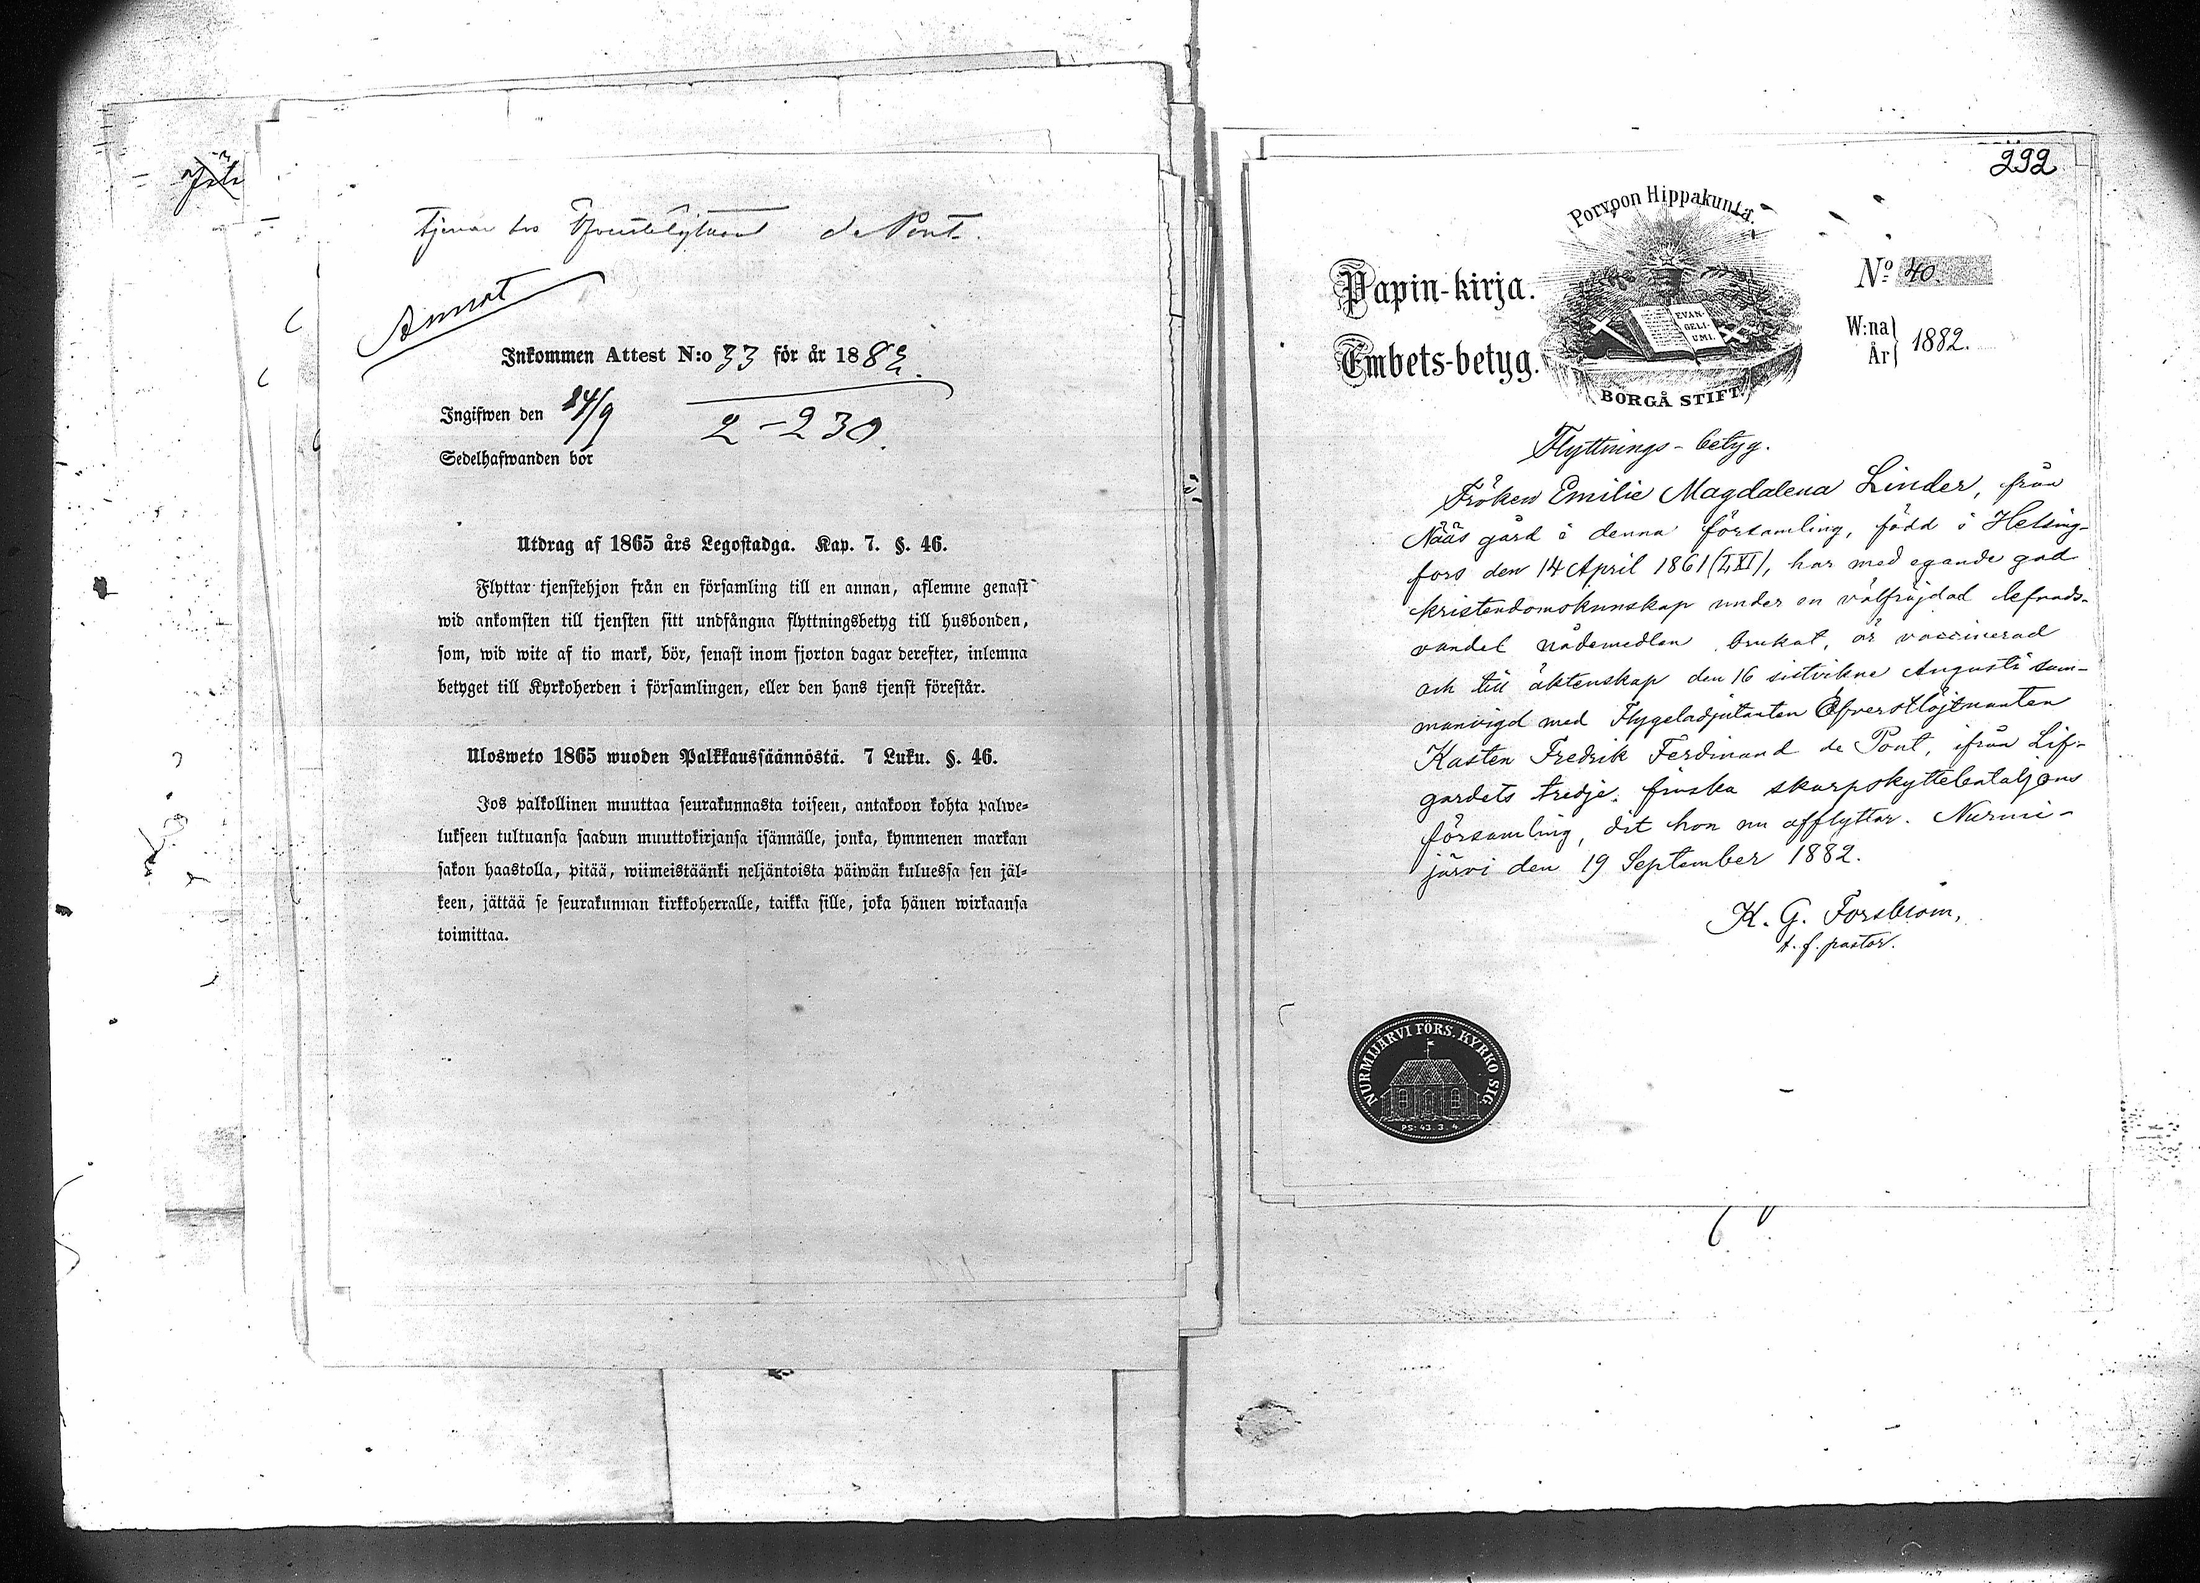 Tjenar hos Öfverstelöjtnant de Pont.
Inkommen Attest N:o 33 för år 1882.
Ingifwen den 24/9 2-230.
Sedelhafwanden bör
Utdrag af 1865 års Legostadga. Kap. 7. §. 46.
Flyttar tjenstehjon från en församling till en annan, aflemne genast
wid ankomsten till tjensten sitt undfångna flyttningsbetyg till husbonden,
som, wid wite af tio mark, bör, senast inom fjorton dagar derefter, inlemna
betyget till Kyrkoherden i församlingen, eller den hans tjenst förestår.
Ulosweto 1865 wuoden Palkkaussäännöstä. 7 Luku. §. 46.
Jos palkollinen muuttaa seurakunnasta toiseen, antakoon kohta palwe-
lukseen tultuansa saadun muuttokirjansa isännälle, jonka, kymmenen markan
sakon haastolla, pitää, wiimeistäänki neljäntoista päiwän kuluessa sen jäl-
keen, jättää se seurakunnan kirkkoherralle, taikka sille, joka hänen wirkaansa
toimittaa.
292
Porvoon Hippakunta.
Papin-kirja.
Embets-betyg.
EVAN-
GELI-
UMI.
BORGÅ STIFT.
No 40.
W:na
År
1882.
Flyttnings-betyg.
Fröken Emilie Magdalena Linder, från
Nääs gård i denna församling, född i Helsing-
fors den 14 April 1861 (LXI), har med egande god
kristendomskunskap under en välfräjdad lefnads-
vandel nådemedlen brukat, är vaccinerad
och till äktenskap den 16 sistvikne Augusti sam-
manvigd med Flygeladjutanten Öfverstlöjtnanten
Kasten Fredrik Ferdinand de Pont, ifrån Lif-
gardets tredje finska skarpskyttebataljons
församling, dit hon nu afflyttar. Nurmi-
järvi den 19 September 1882.
K. G. Forsblom,
t. f. pastor.
NURMIJÄRVI FÖRS. KYRKO SIG.
PS: 43. 3. 4.